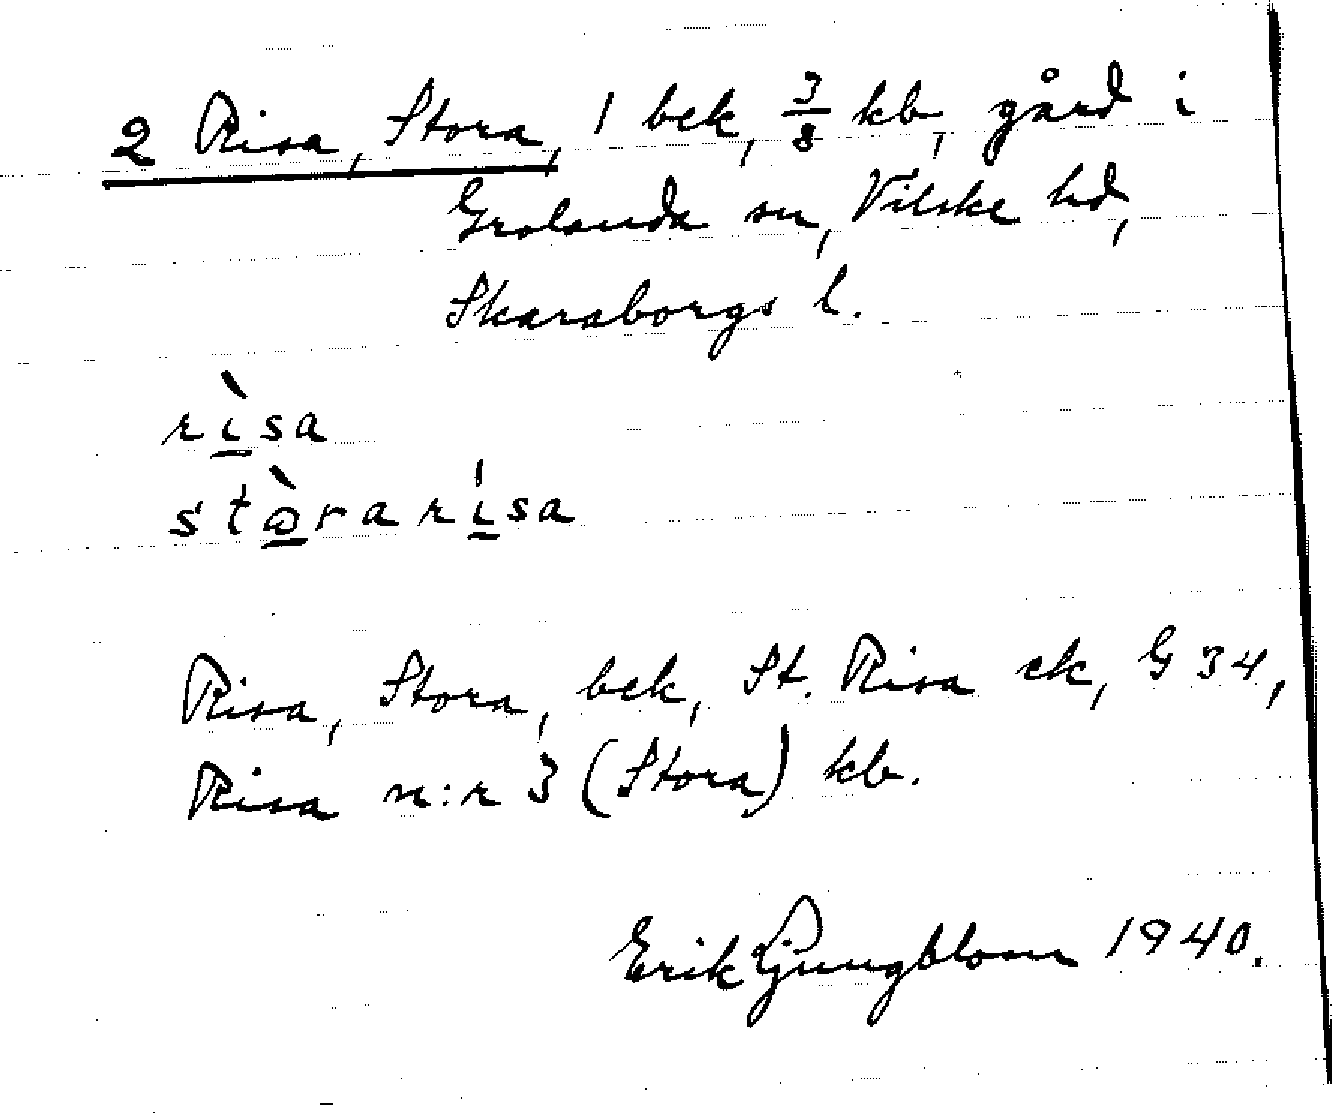 2 Risa, Stora, 1 bek, 3/8 kb, gård i
Grolanda sn, Vilske hd,
Skaraborgs l.
rìsa
stò̱rarísa
Risa, Stora, bek, St. Risa ek, G 34,
Risa n:r 3 (Stora) kb.
Erik Ljungblom 1940.